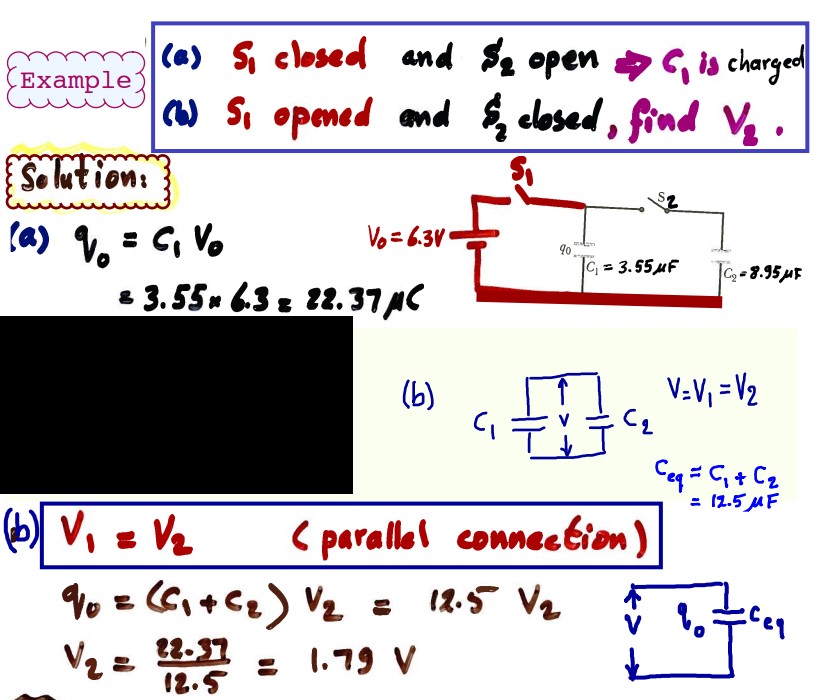 Example
(a) S₁ closed and S₂ open ⇒ C₁ is charged
(b) S₁ opened and S₂ closed, find V₂.
Solution:
(a) q₀ = C₁ V₀
= 3.55 × 6.3 = 22.37 μC
S₁
S₂
V₀ = 6.3V
q₀
C₁ = 3.55 μF
C₂ = 8.95 μF
(b)
C₁ V C₂
V = V₁ = V₂
Ceq = C₁ + C₂
= 12.5 μF
(b) V₁ = V₂ (parallel connection)
q₀ = (C₁ + C₂) V₂ = 12.5 V₂
V₂ = 22.37/12.5 = 1.79 V
V q₀ Ceq